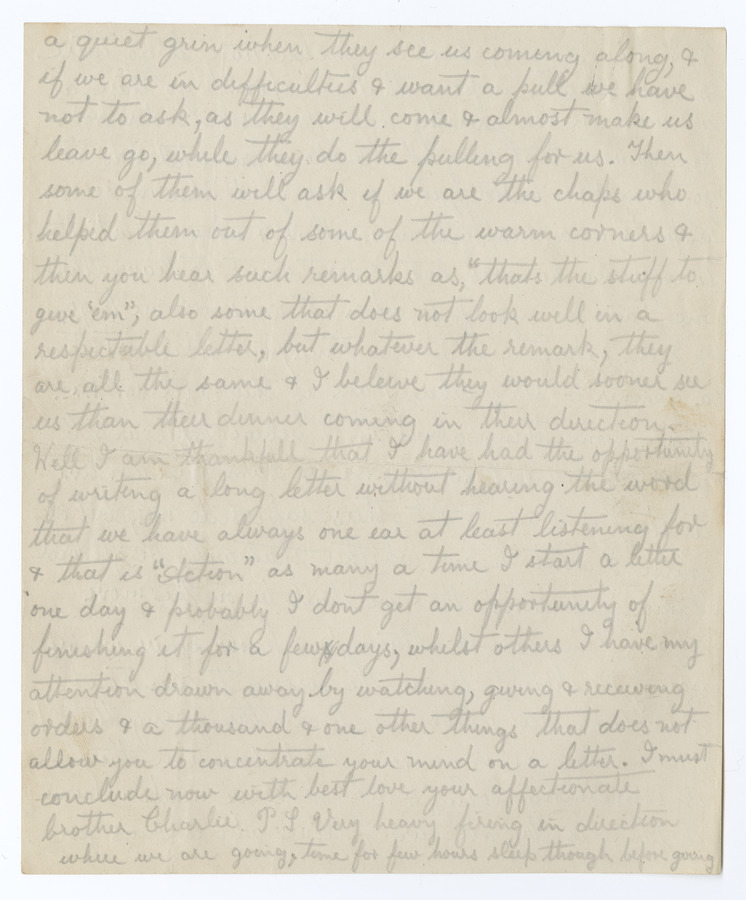 a quiet grin when they see us coming along, &
if we are in difficulties & want a pull we have
not to ask, as they will come & almost make us
leave go, while they do the pulling for us. Then
some of them will ask if we are the chaps who
helped them out of some of the warm corners &
then you hear such remarks as, "thats the stuff to
give 'em", also some that does not look well in a
respectable letter, but whatever the remark, they
are all the same & I beleive they would sooner see
us than their dinner coming in their direction.
Well I am thankfull that I have had the opportunity
of writing a long letter without hearing the word
that we have always one ear at least listening for
& that is "Action" as many a time I start a letter
one day & probably I dont get an opportunity of
finishing it for a few days, whilst others I have my
attention drawn away by watching, giving & receiving
orders & a thousand & one other things that does not
allow you to concentrate your mind on a letter. I must
conclude now with best love your affectionate
brother Charlie. P.S Very heavy firing in direction
where we are going, time for few hours sleep though before going